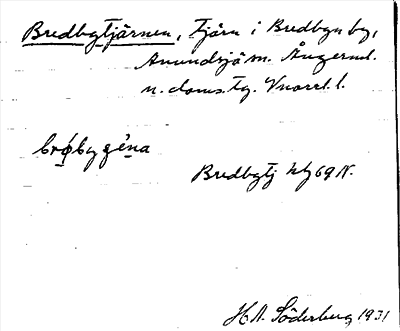 Bredbytjärnen, tjärn i Bredbyn by,
Anundsjö sn. Ångerml.
n. doms. tg. Vnorrl. l.
brǿbygèna
Bredbytj
69 N.
H. A. Söderberg 1931